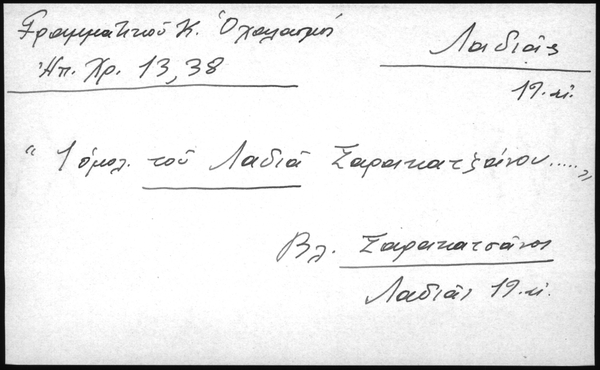 Γραμματικού Κ. Ὁχαλασμοί
Ἠπ. Χρ. 13,38
Λαδιᾶς
19. αἰ.
"1 ὁμολ. τοῦ Λαδιᾶ Σαρακατζάνου....."
Βλ. Σαρακατσάνοι
Λαδιᾶς 19. αἰ.